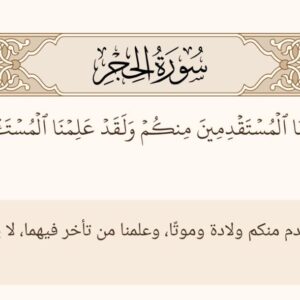 سُورَةُ الحِجْرِ
ٱلْمُسْتَقْدِمِينَ مِنكُمْ وَلَقَدْ عَلِمْنَا
منكم ولادة وموتًا، وعلمنا من تأخر فيهما، لا